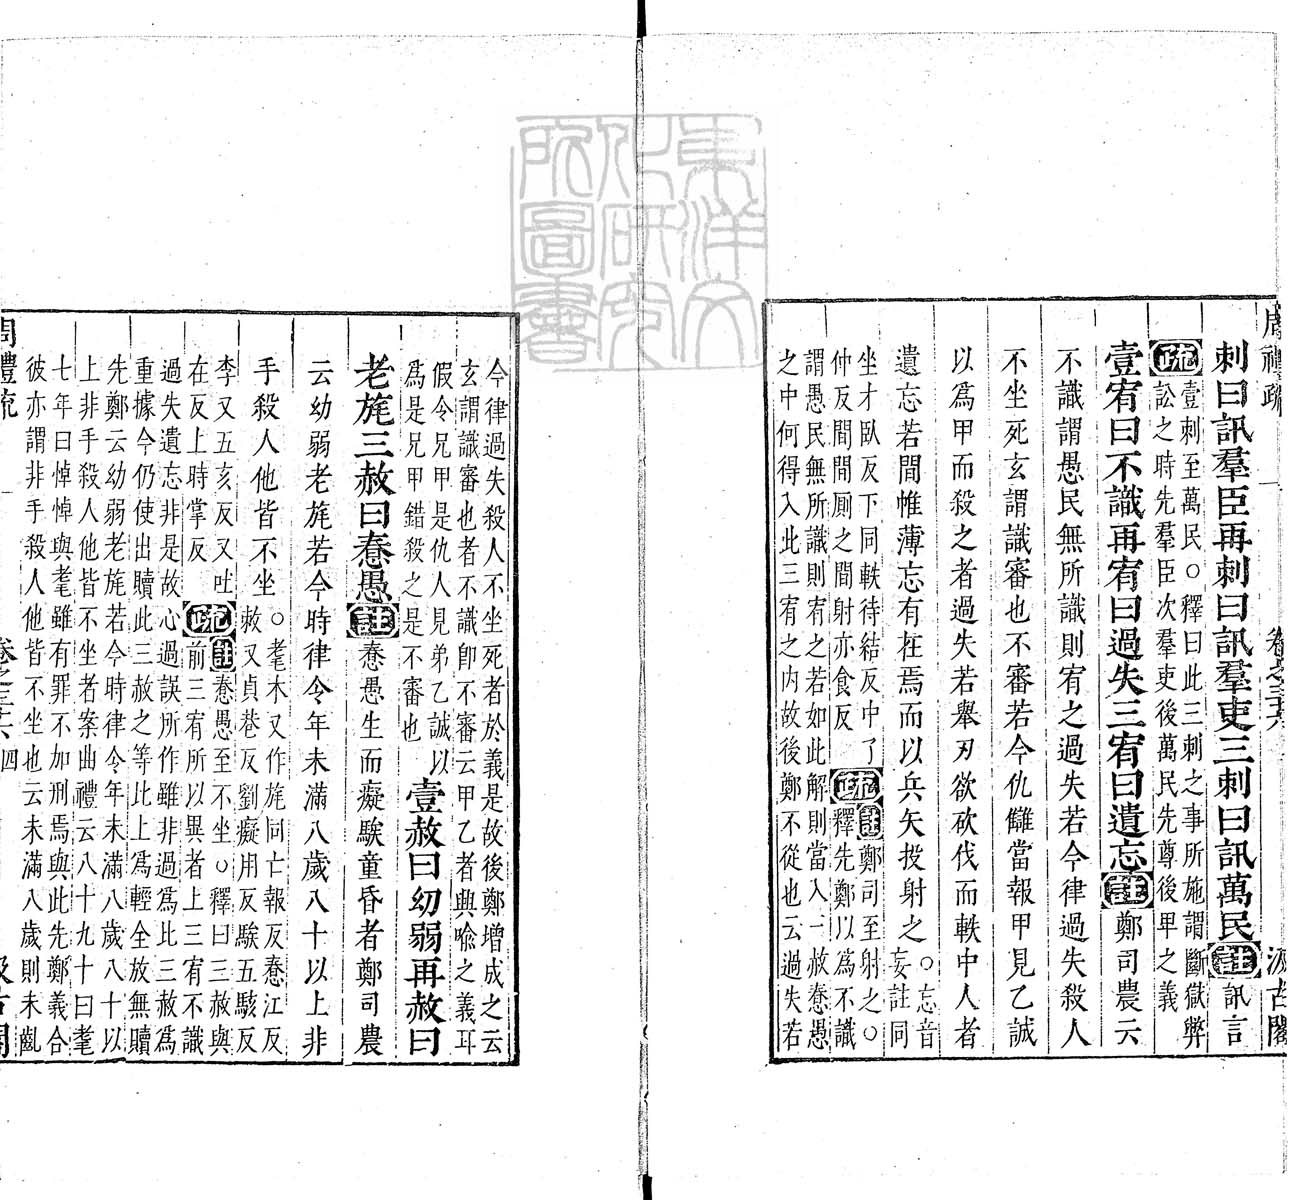 周禮疏
卷之三十六
汲古閣
刺曰訊羣臣再刺曰訊羣吏三刺曰訊萬民註訊言
疏壹刺至萬民○釋曰此三刺之事所施謂斷獄弊
訟之時先羣臣次羣吏後萬民先尊後卑之義
壹宥曰不識再宥曰過失三宥曰遺忘註鄭司農云
不識謂愚民無所識則宥之過失若今律過失殺人
不坐死玄謂識審也不審若今仇讎當報甲見乙誠
以爲甲而殺之者過失若舉刃欲砍伐而軼中人者
遺忘若間帷薄忘有在焉而以兵矢投射之○忘音
妄註同
坐才臥反下同軼待結反中了
仲反間間厠之間射亦食反疏註鄭司至射之○
釋先鄭以爲不識
謂愚民無所識則宥之若如此解則當入一赦惷愚
之中何得入此三宥之内故後鄭不從也云過失若
今律過失殺人不坐死者於義是故後鄭增成之云
玄謂識審也者不識卽不審云甲乙者興喩之義耳
假令兄甲是仇人見弟乙誠以
爲是兄甲錯殺之是不審也壹赦曰幼弱再赦曰
老旄三赦曰惷愚註惷愚生而癡騃童昏者鄭司農
云幼弱老旄若今時律令年未滿八歲八十以上非
手殺人他皆不坐○耄木又作旄同亡報反惷江反
赦又貞巷反劉癡用反騃五駭反
李又五亥反又吐
在反上時掌反疏註惷愚至不坐○釋曰三赦與
前三宥所以異者上三宥不識
過失遺忘非是故心過誤所作雖非過爲此三赦爲
重據今仍使出贖此三赦之等比上爲輕全放無贖
先鄭云幼弱老旄若今時律令年未滿八歲八十以
上非手殺人他皆不坐者案曲禮云八十九十曰耄
七年曰悼悼與耄雖有罪不加刑焉與此先鄭義合
彼亦謂非手殺人他皆不坐也云未滿八歲則未齔
周禮疏
卷之三十六
四
汲古閣
東洋文
化研究
所圖書